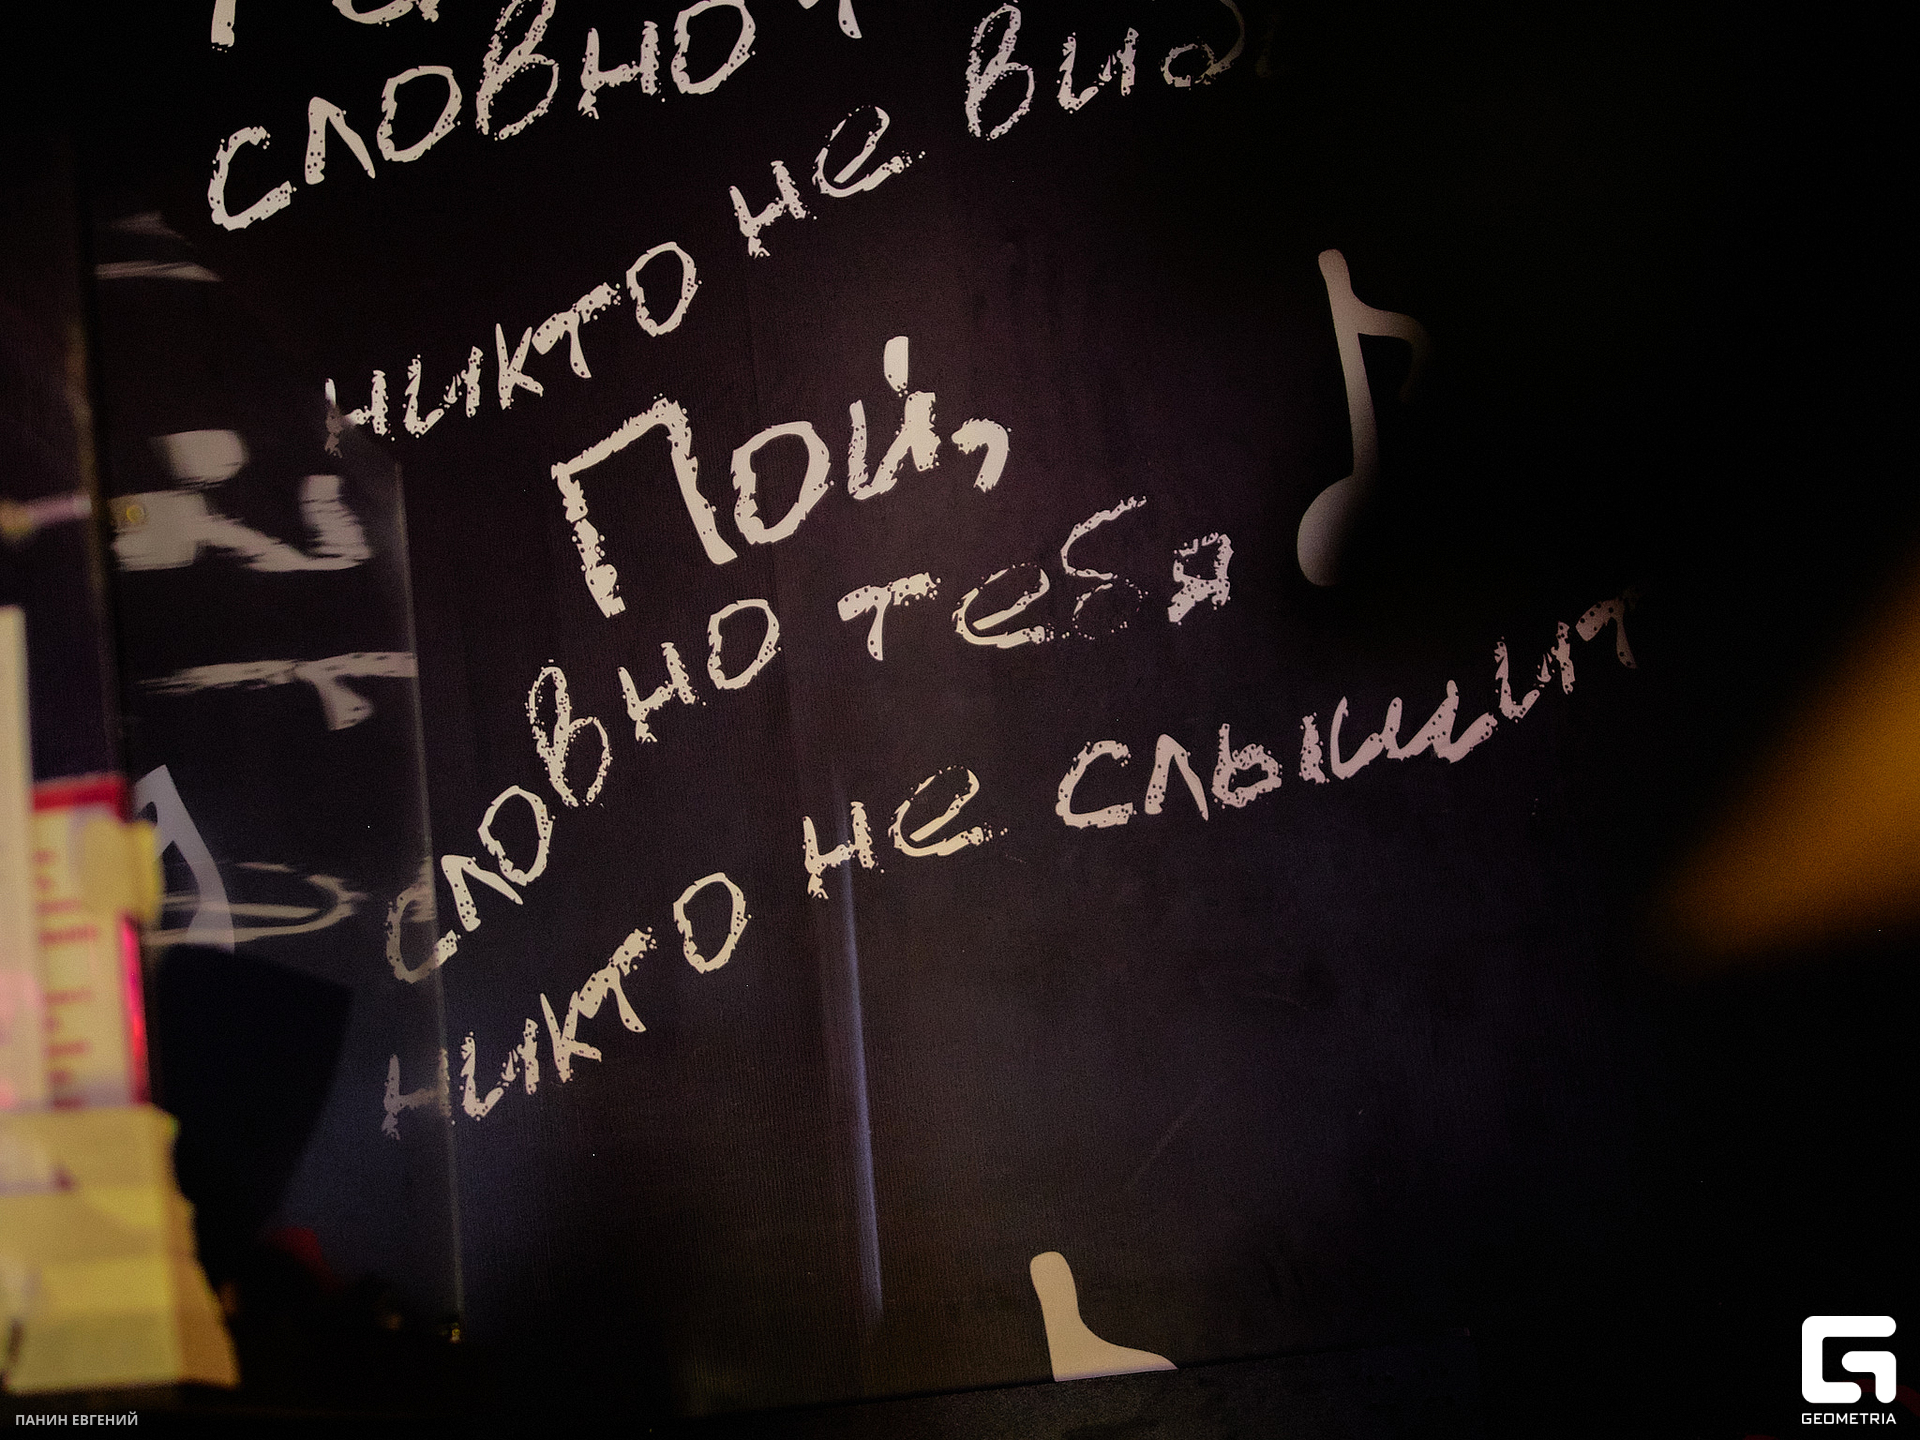 словно
никто не
Пой,
словно тебя
никто не слышит
ПАНИН ЕВГЕНИЙ
GEOMETRIA